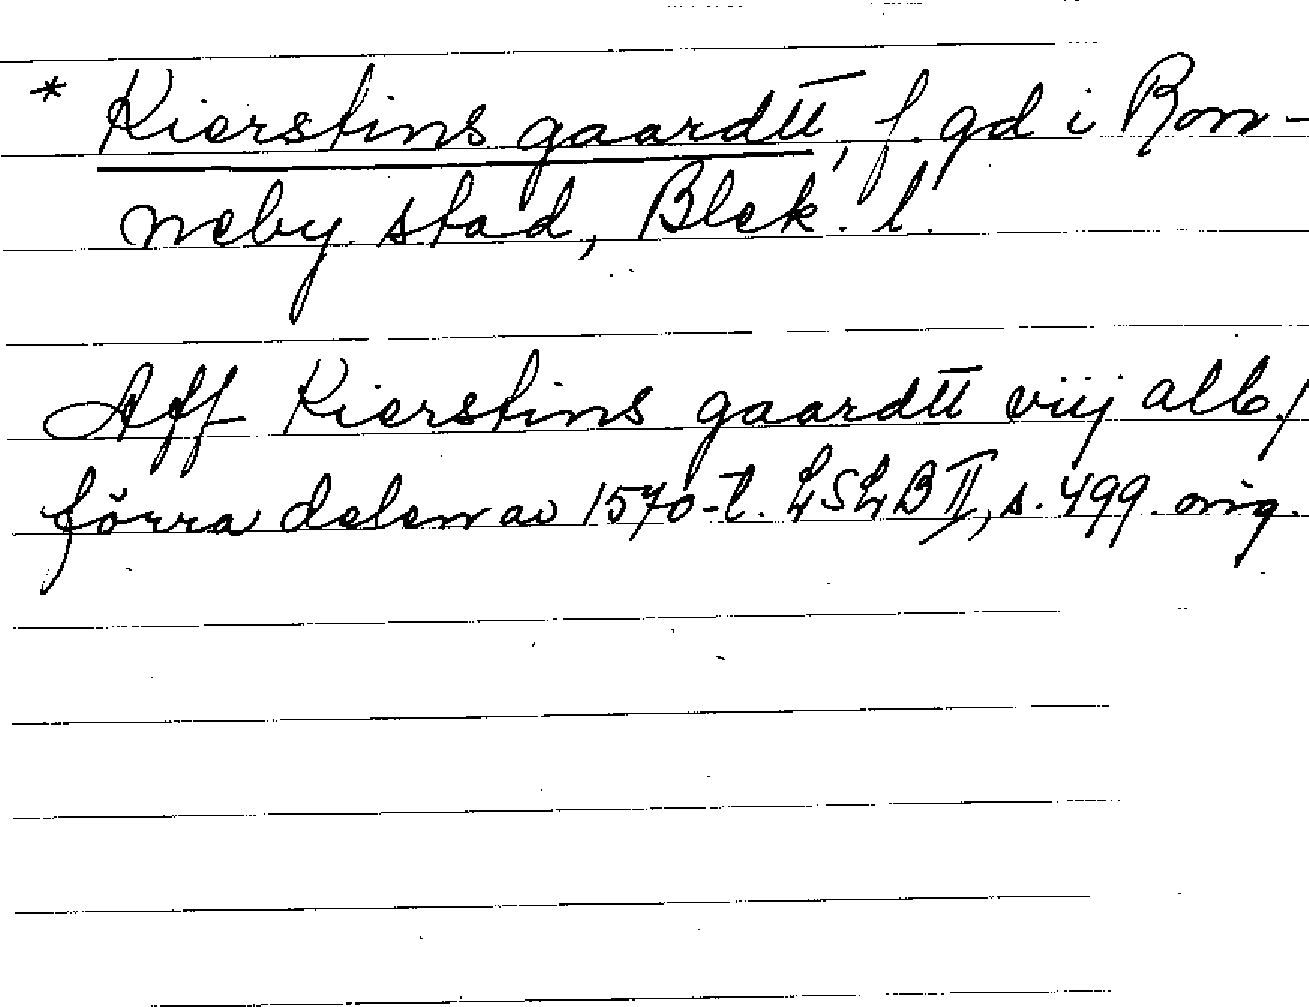 * Kierstins gaardtt, f. gd i Ron-
neby stad, Blek. l.
Aff Kierstins gaardtt viij alb./
förra delen av 1570-t. LSLB II, s. 499. orig.